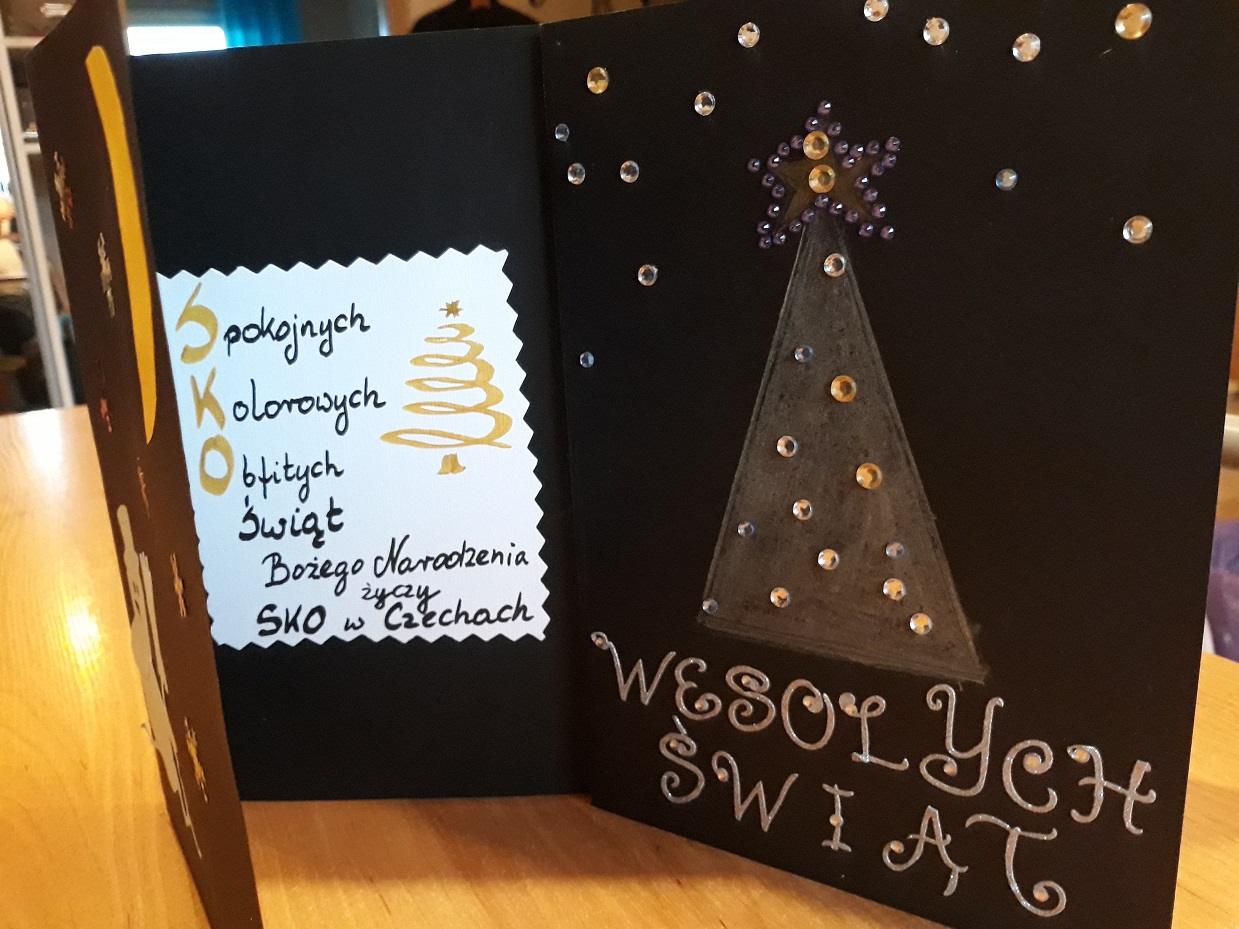 Spokojnych
Kolorowych
Obfitych
Świąt
Bożego Narodzenia
życzy
SKO w Czechach
WESOŁYCH
ŚWIĄT